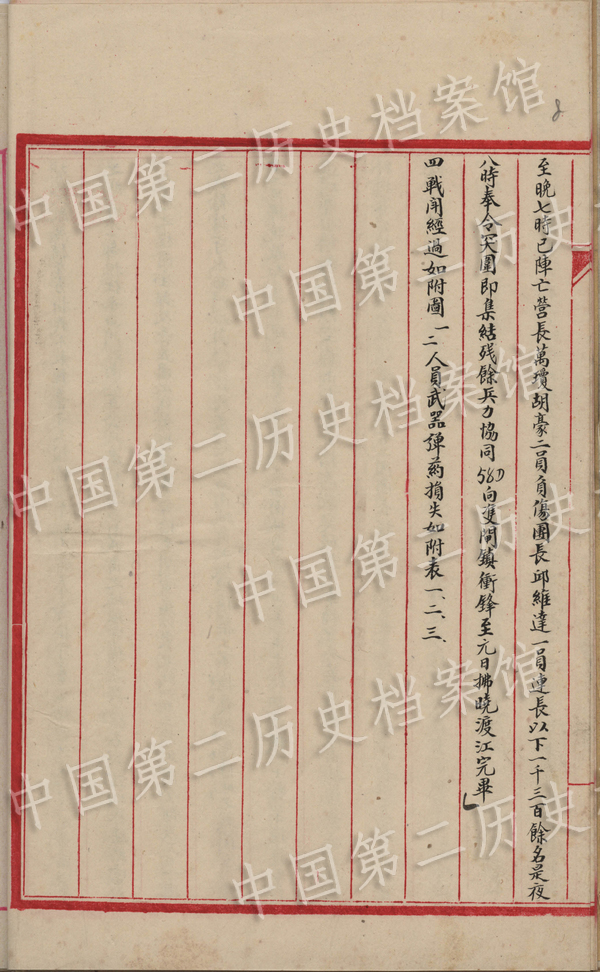 至晚七時已陣亡營長萬瓊胡豪二員負傷團長邱維達一員連長以下一千三百餘名是夜
八時奉令突圍即集結残餘兵力協同58D向雙閘鎮衝鋒至元日拂曉渡江完畢
四戰鬥經過如附圖一二人員武器彈葯損失如附表一、二、三、
8
中国第二历史档案馆
中国第二历史档案馆
中国第二历史档案馆
中国第二历史档案馆
中国第二历史档案馆
中国第二历史档案馆